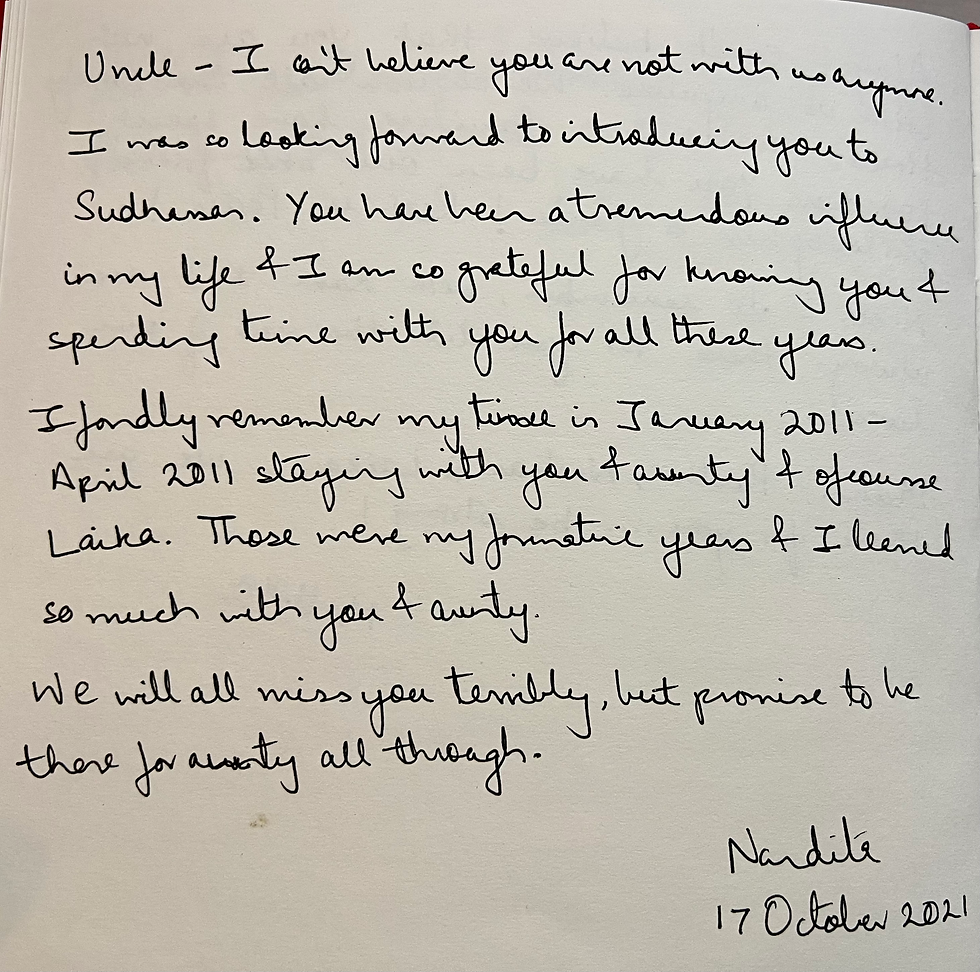 Uncle - I can't believe you are not with us anymore.
I was so looking forward to introducing you to
Sudhansan. You have been a tremendous influence
in my life & I am so grateful for knowing you &
spending time with you for all these years.
I fondly remember my time in January 2011 -
April 2011 staying with you & aunty & ofcourse
Laika. Those were my formative years & I learned
so much with you & aunty.
We will all miss you terribly, but promise to be
there for aunty all through.
Nandita
17 October 2021